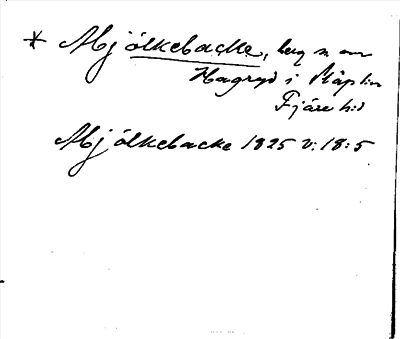 * Mjölkebacke, berg n om
Hagryd i Släp sn
Fjäre hd
Mjölkebacke 1825 V: 18:5